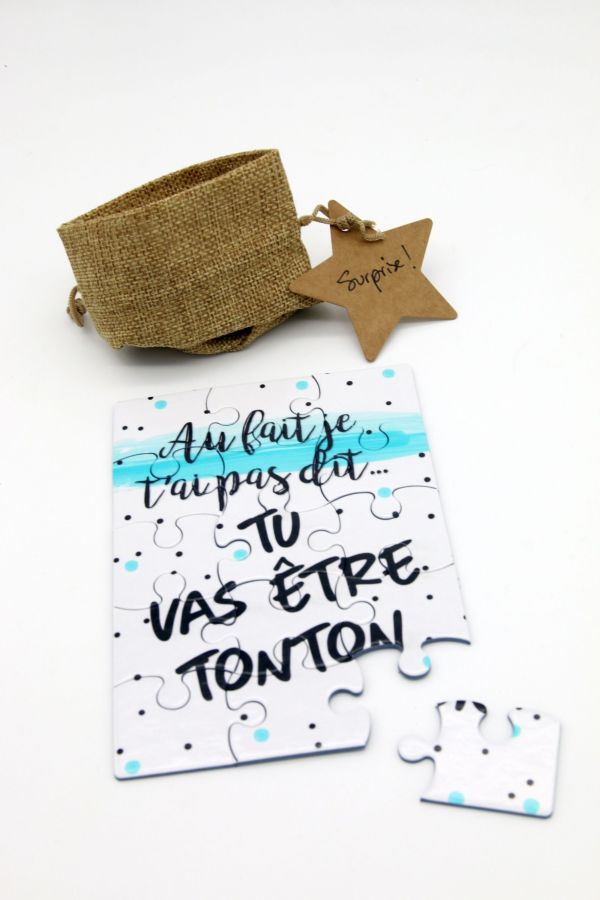 Surprise!
Au fait je
t'ai pas dit...
TU
VAS ÊTRE
TONTON